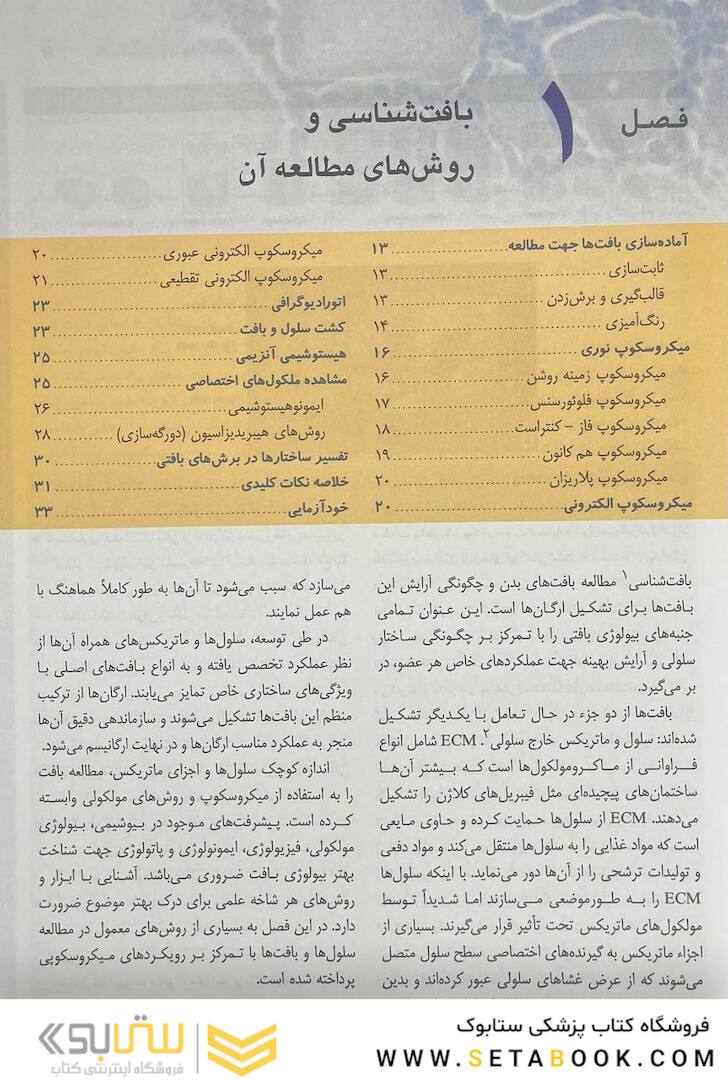 فصل ۱
بافت‌شناسی و
روش‌های مطالعه آن
آماده‌سازی بافت‌ها جهت مطالعه ۱۳
ثابت‌سازی ۱۳
قالب‌گیری و برش‌زدن ۱۳
رنگ‌آمیزی ۱۴
میکروسکوپ نوری ۱۶
میکروسکوپ زمینه روشن ۱۶
میکروسکوپ فلوئورسنس ۱۷
میکروسکوپ فاز - کنتراست ۱۸
میکروسکوپ هم کانون ۱۹
میکروسکوپ پلاریزان ۲۰
میکروسکوپ الکترونی ۲۰
میکروسکوپ الکترونی عبوری ۲۰
میکروسکوپ الکترونی تقطیعی ۲۱
اتورادیوگرافی ۲۳
کشت سلول و بافت ۲۳
هیستوشیمی آنزیمی ۲۵
مشاهده ملکول‌های اختصاصی ۲۵
ایمونوهیستوشیمی ۲۶
روش‌های هیبریدیزاسیون (دورگه‌سازی) ۲۸
تفسیر ساختارها در برش‌های بافتی ۳۰
خلاصه نکات کلیدی ۳۱
خودآزمایی ۳۳
بافت‌شناسی۱ مطالعه بافت‌های بدن و چگونگی آرایش این
بافت‌ها برای تشکیل ارگان‌ها است. این عنوان تمامی
جنبه‌های بیولوژی بافتی را با تمرکز بر چگونگی ساختار
سلولی و آرایش بهینه جهت عملکردهای خاص هر عضو، در
بر می‌گیرد.
بافت‌ها از دو جزء در حال تعامل با یکدیگر تشکیل
شده‌اند: سلول و ماتریکس خارج سلولی۲. ECM شامل انواع
فراوانی از ماکرومولکول‌ها است که بیشتر آن‌ها
ساختمان‌های پیچیده‌ای مثل فیبریل‌های کلاژن را تشکیل
می‌دهند. ECM از سلول‌ها حمایت کرده و حاوی مایعی
است که مواد غذایی را به سلول‌ها منتقل می‌کند و مواد دفعی
و تولیدات ترشحی را از آن‌ها دور می‌نماید. با اینکه سلول‌ها
ECM را به طورموضعی می‌سازند اما شدیداً توسط
مولکول‌های ماتریکس تحت تأثیر قرار می‌گیرند. بسیاری از
اجزاء ماتریکس به گیرنده‌های اختصاصی سطح سلول متصل
می‌شوند که از عرض غشاهای سلولی عبور کرده‌اند و بدین
می‌سازد که سبب می‌شود تا آن‌ها به طور کاملاً هماهنگ با
هم عمل نمایند.
در طی توسعه، سلول‌ها و ماتریکس‌های همراه آن‌ها از
نظر عملکرد تخصص یافته و به انواع بافت‌های اصلی با
ویژگی‌های ساختاری خاص تمایز می‌یابند. ارگان‌ها از ترکیب
منظم این بافت‌ها تشکیل می‌شوند و سازماندهی دقیق آن‌ها
منجر به عملکرد مناسب ارگان‌ها و در نهایت ارگانیسم می‌شود.
اندازه کوچک سلول‌ها و اجزای ماتریکس، مطالعه بافت
را به استفاده از میکروسکوپ و روش‌های مولکولی وابسته
کرده است. پیشرفت‌های موجود در بیوشیمی، بیولوژی
مولکولی، فیزیولوژی، ایمونولوژی و پاتولوژی جهت شناخت
بهتر بیولوژی بافت ضروری می‌باشد. آشنایی با ابزار و
روش‌های هر شاخه علمی برای درک بهتر موضوع ضرورت
دارد. در این فصل به بسیاری از روش‌های معمول در مطالعه
سلول‌ها و بافت‌ها با تمرکز بر رویکردهای میکروسکوپی
پرداخته شده است.
فروشگاه کتاب پزشکی ستابوک
WWW.SETABOOK.COM
ستابوک
فروشگاه اینترنتی کتاب